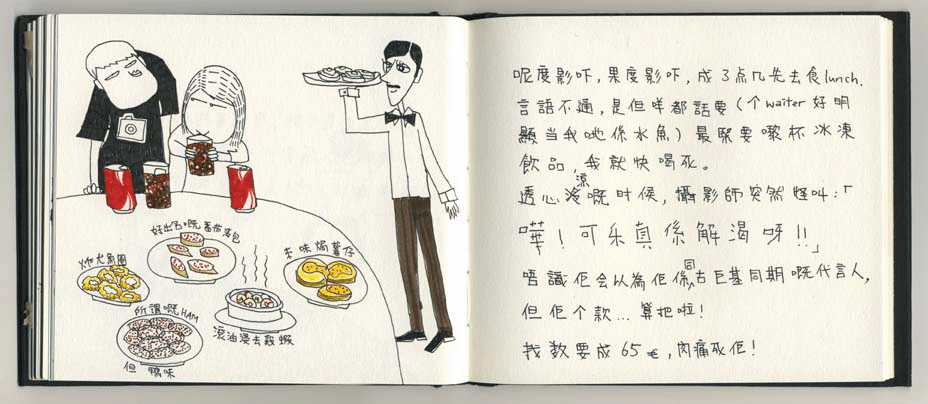 好出名嘅蕃茄包
炸尤魚圈
本味焗薯仔
所謂嘅HAM
但鴨味
滾油浸去殼蝦
呢度影吓,果度影吓,成3点几先去食lunch.
言語不通,是但咩都話要(个waiter好明
顯当我哋係水魚)最緊要嚟杯冰凍
飲品,我就快喝死。
透心涼嘅时候,攝影師突然怪叫:「
嘩!可乐真係解渴呀!!」
唔識佢会以為佢係同古巨基同期嘅代言人,
但佢个款...算把啦!
找数要成65€,肉痛死佢!